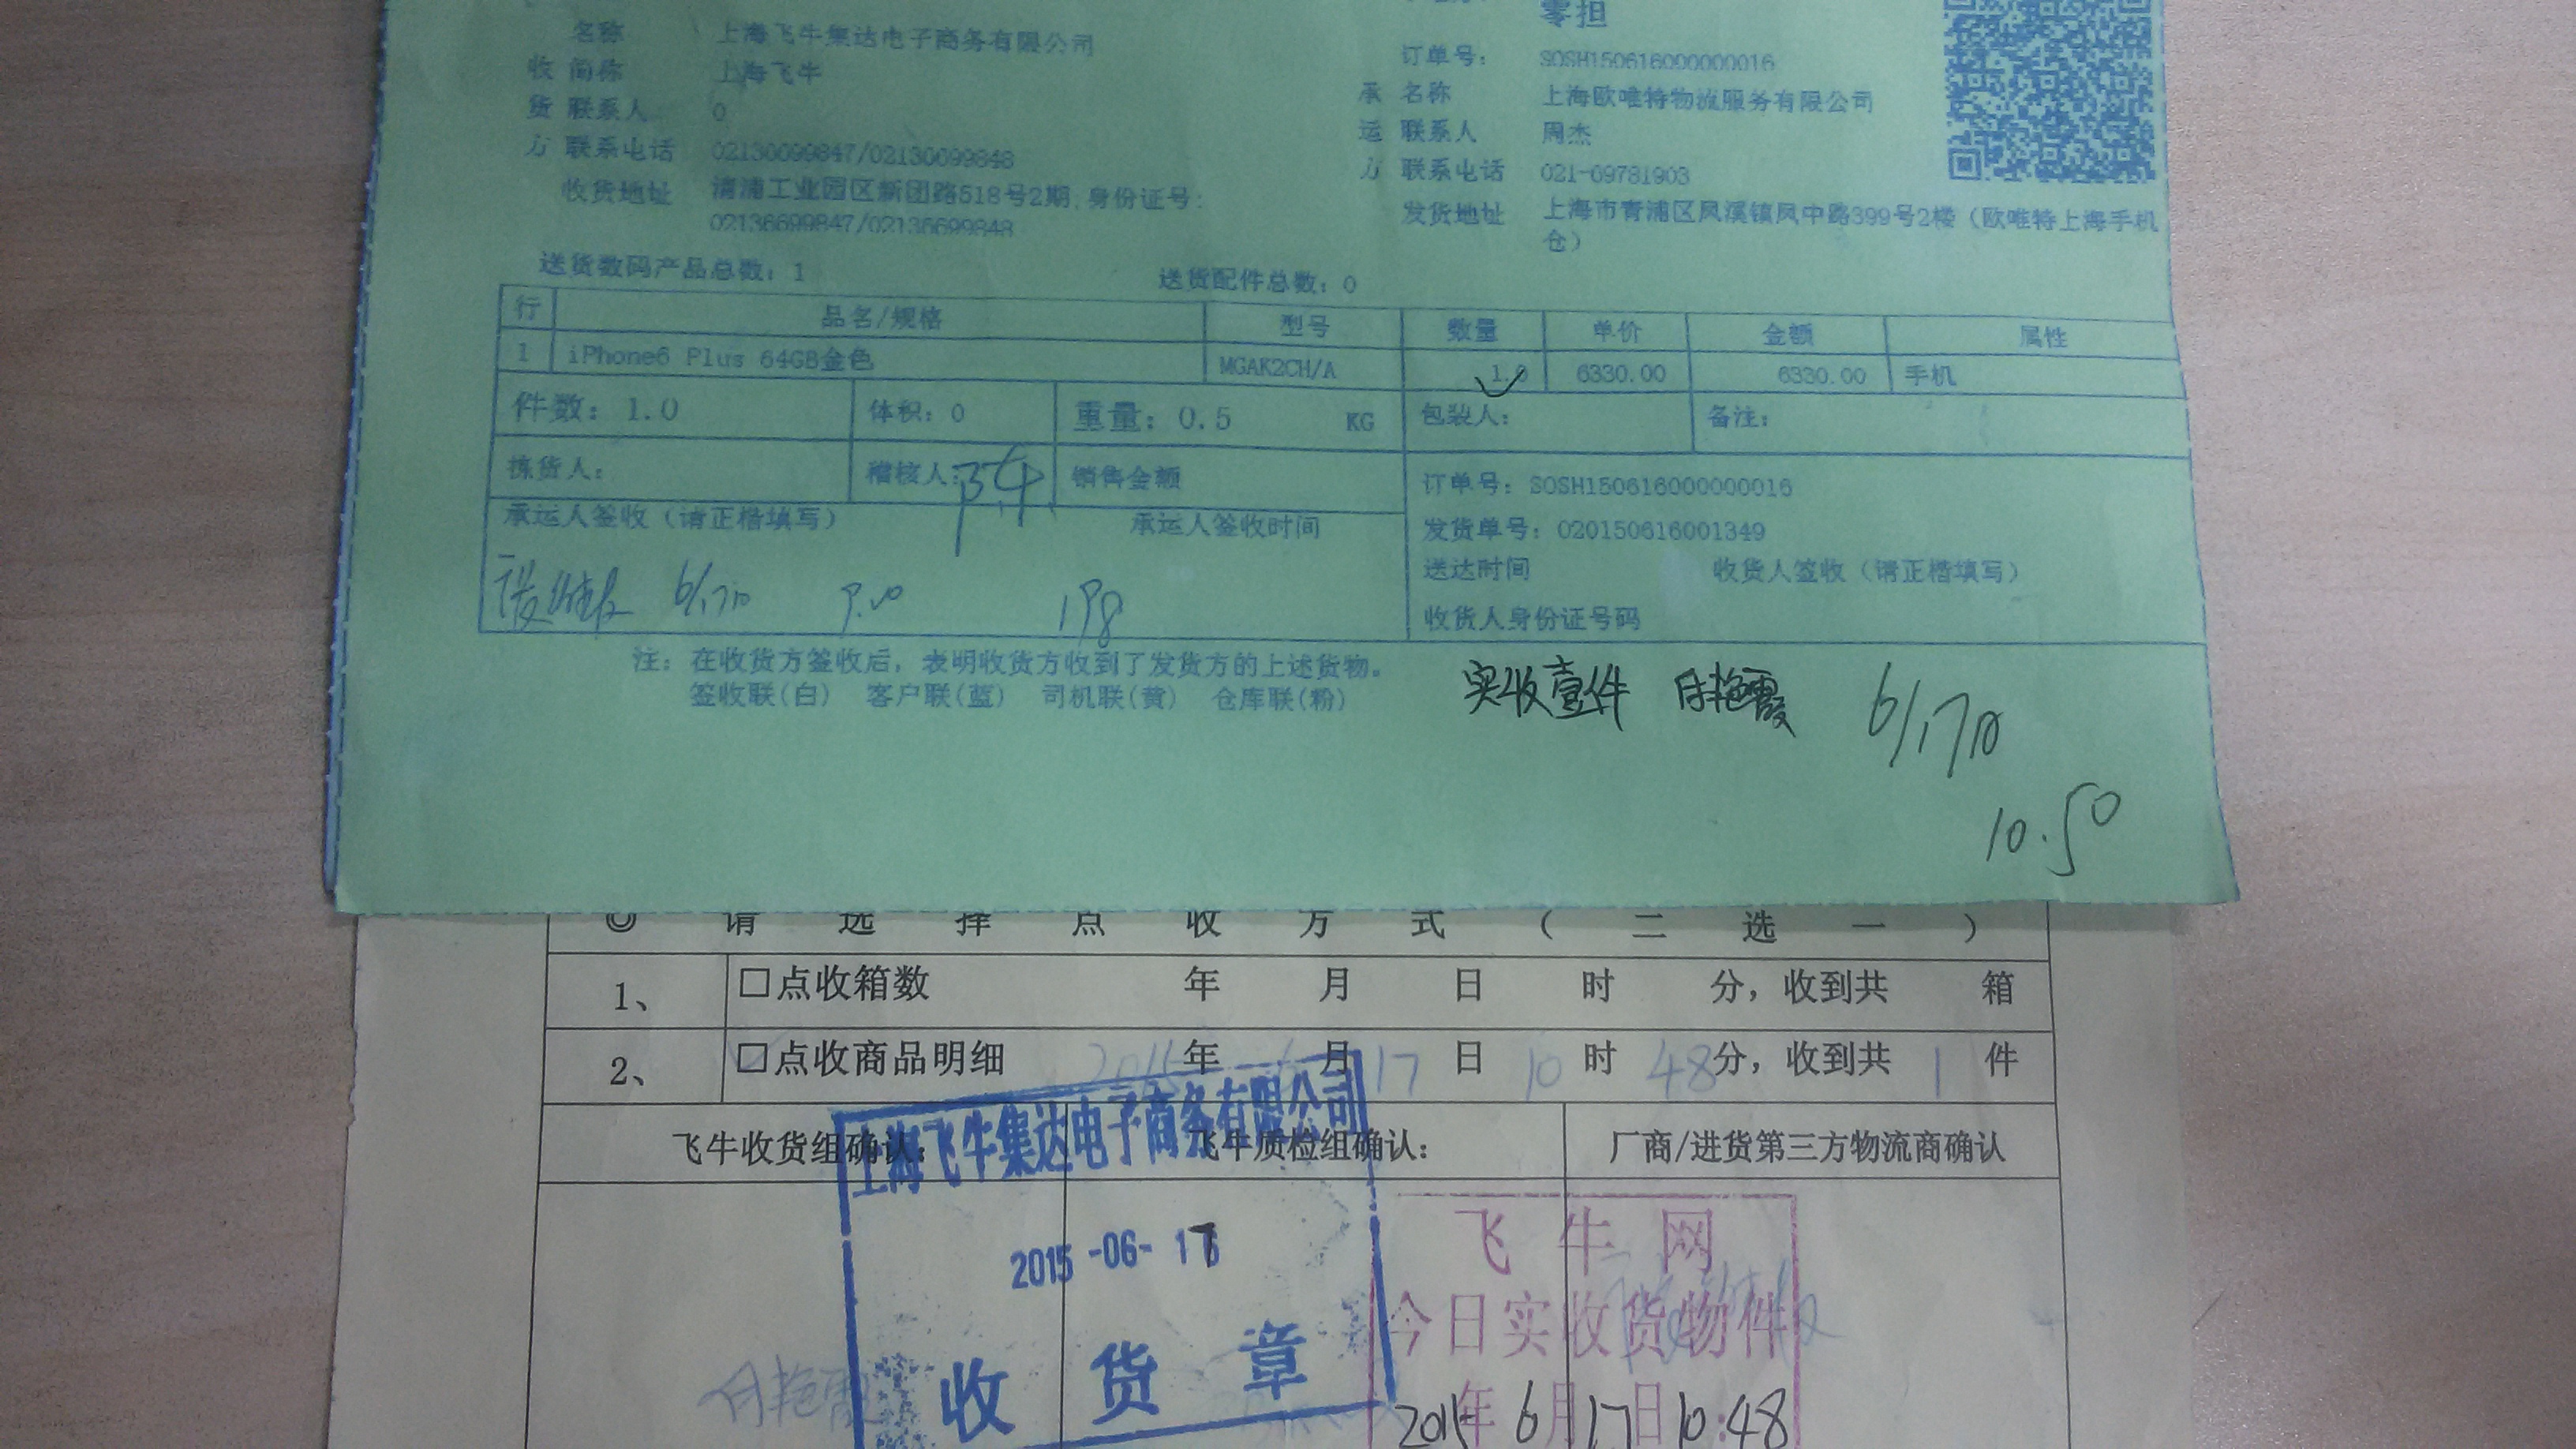 零担
名称 上海飞牛集达电子商务有限公司
订单号: SOSH150616000000016
收 简称 上海飞牛
承 名称 上海欧唯特物流服务有限公司
货 联系人 0
运 联系人 周杰
方 联系电话 02136699847/02136699848
方 联系电话 021-69781903
收货地址 清浦工业园区新团路518号2期,身份证号:
02136699847/02136699848
发货地址 上海市青浦区凤溪镇凤中路399号2楼（欧唯特上海手机
仓）
送货数码产品总数: 1 送货配件总数: 0
行 品名/规格 型号 数量 单价 金额 属性
1 iPhone6 Plus 64GB金色 MGAK2CH/A 1.0 6330.00 6330.00 手机
件数: 1.0 体积: 0 重量: 0.5 KG 包装人: 备注:
拣货人: 稽核人: 销售金额
订单号: SOSH150616000000016
承运人签收（请正楷填写） 承运人签收时间
发货单号: 020150616001349
送达时间 收货人签收（请正楷填写）
6/17日 198
收货人身份证号码
注: 在收货方签收后, 表明收货方收到了发货方的上述货物。
签收联(白) 客户联(蓝) 司机联(黄) 仓库联(粉)
实收壹件 6/17日
10.50
◎ 请选择点收方式（二选一）
1、 □点收箱数 年 月 日 时 分，收到共 箱
2、 □点收商品明细 2015年 6月 17日 10时 48分，收到共 1件
飞牛收货组确认: 飞牛质检组确认: 厂商/进货第三方物流商确认
上海飞牛集达电子商务有限公司
2015-06-17
收货章
飞牛网
今日实收货物件
2015年6月17日 10:48